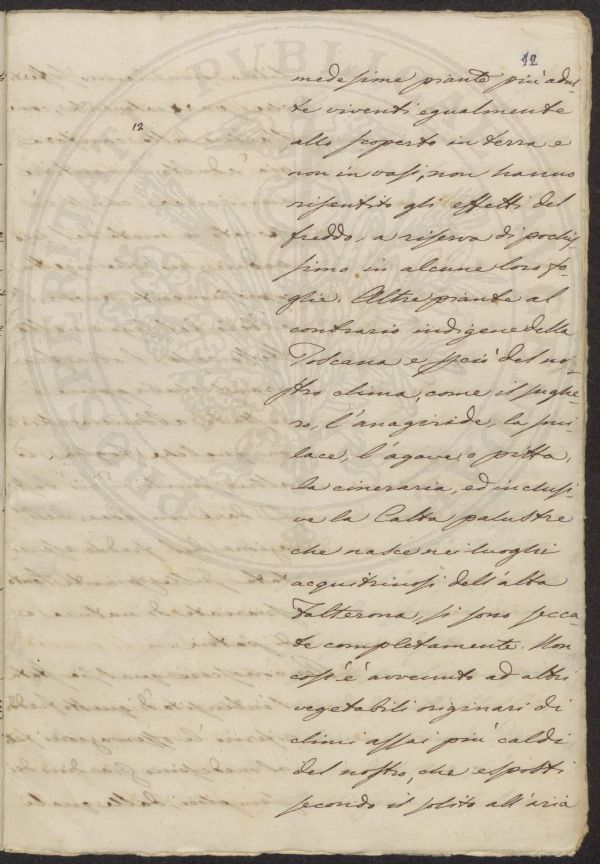 12
12
medesime piante più adul
te viventi egualmente
allo scoperto in terra e
non in vasi, non hanno
risentito gli effetti del
freddo, a riserva di pochis
simo in alcune loro fo-
glie. Altre piante al
contrario indigene della
Toscana e del no-
stro clima, come il sughe-
ro, l'anagiride, la
l'agave o pitta,
la cineraria, ed inclusi-
ve la Calta palustre
che nasce nei luoghi
acquitrinosi dell'alta
Falterona, si sono secca-
te completamente. Non
così è avvenuto ad altri
vegetabili originari di
climi assai più caldi
del nostro, che esposti
secondo il solito all'aria